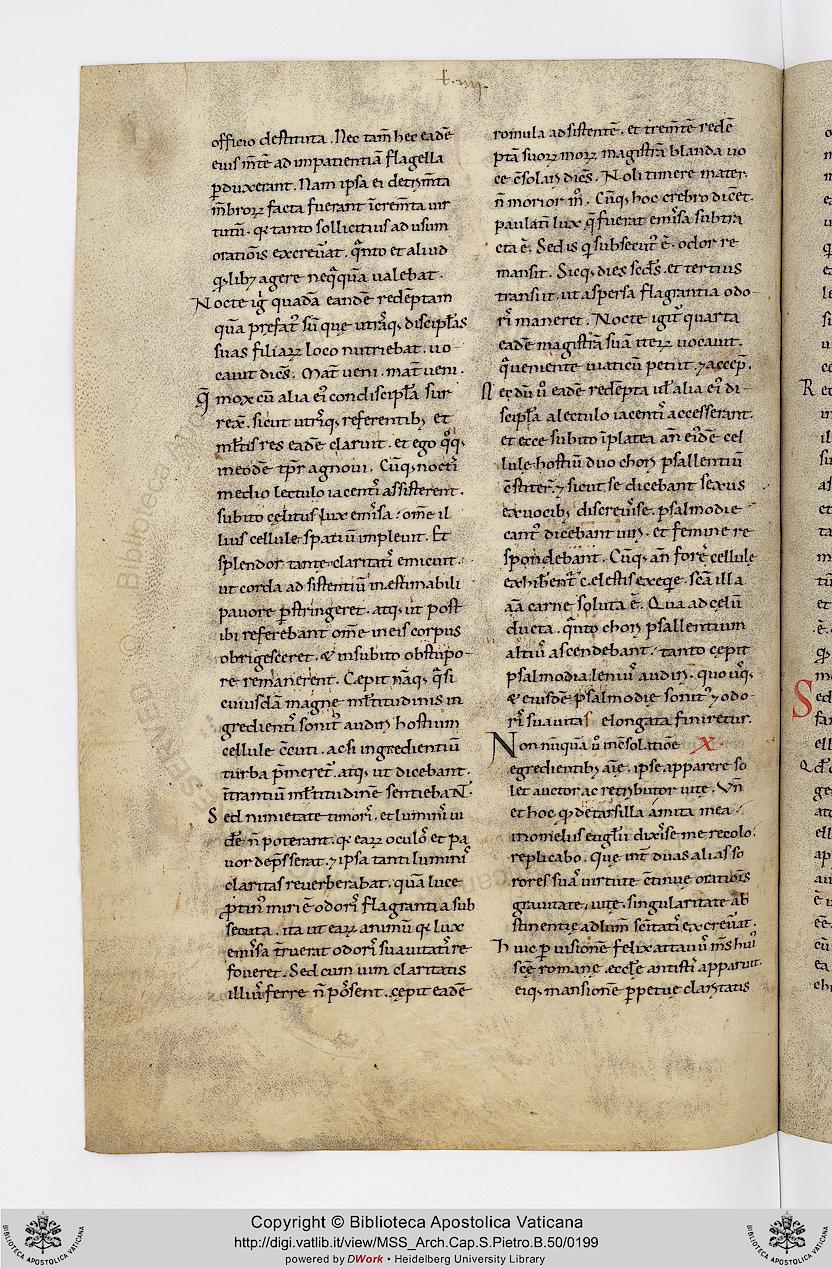 officio destituta. Nec tam̄ hec eadē
eius m̄te ad inpatientiā flagella
ꝑduxerant. Nam ipsa ei det͛m̄ta
m̄broꝝ facta fuerant īcrem̄ta uir
tutū. q; tanto sollicitius ad usum
orationis excreuerat. quanto et aliud
q; lib; agere neq̄quā ualebat.
Nocte ig̅ quadā eandē redēptam
quā prefat᷒ sū quę utrāq; discipl̄as
suas filiaꝝ loco nutriebat. uo
cauit dicēs. Mat͛ ueni. mat͛ ueni.
Q̄ mox cū alia ei᷒ condiscipl̄a sur
rex̄. sicut utriq; referentib; et
ml̄tis res eadē claruit. et ego q̊q;
ineodē tp̄r agnoui. Cūq; noctis
medio lectulo iacentis assisterent.
subito cęlitus lux em̄sa om̄e il
lius cellule spatiū impleuit. Et
splendor tante claritatis emicuit.
ut corda ad sistentiū inestimabili
pauore ꝑstringeret. atq; ut post
ibi referebant om̄e in eis corpus
obrigesceret. & insubito obstupo
re remanerent. Cępit nāq; q̄si
cuiusdā magne ml̄titudinis in
gredientis sonit᷒ audiri hostium
cellule c̄cuti. acsi ingredientiū
turba p̄meret᷒. atq; ut dicebant.
ītrantiū ml̄titudinē sentiebaN̄.
Sed nimietate timoris. et luminis ui
dē n̄ poterant. q; eaꝝ oculos et pa
uor dep̄sserat. ⁊ ipsa tanti luminis
claritas reuerberabat. quā luce
ꝓtin᷒ miri ē odoris flagrantia sub
secuta. ita ut eaꝝ animū q; lux
em̄sa t͛ruerat odoris suauitatis re
foueret. Sed cum uim claritatis
illius ferre n̄ possent. cępit eadē
romula adsistentē. et trem̄tē redē
ptā suoꝝ moꝝ magistrā blanda uo
ce c̄solari dicēs. Noli timere mater.
n̄ morior m̊. Cūq; hoc crebro dicēt.
paulatī lux q̄ fuerat em̄sa subtra
cta ē. Sed is q̄ subsecut᷒ ē. odor re
mansit. Sicq; dies scd̄s. et tertius
transiit. ut aspersa flagrantia odo
ris maneret. Nocte igit᷒ quarta
eadē magistrā suā iteꝝ uocauit.
q̄ ueniente uiaticū petiit. ⁊ accep̄.
Necdū u᷒ eadē redēpta ul̄ alia ei᷒ di
scipl̄a a lectulo iacentis accesserant.
et ecce subito īplatea an̄ eidē cel
lule hostiū duo chori psallentiū
c̄stiter̄. ⁊ sicut se dicebant sexus
ex uocib; discreuisse. psalmodie
cant᷒ dicebant uiri. et femine re
spondebant. Cūq; an̄ fores cellule
exhiberent᷒ cęlestis exeq̄e. sc̄a illa
aīa carne soluta ē. Qua ad celū
ducta. quanto chori psallentium
altius ascendebant. tanto cępit
psalmodia leniu᷒ audiri. quo usq;
& eiusdē psalmodie sonit᷒ ⁊ odo
ris suauitas elongata finiretur.
Non nūquā u᷒ in c̄solatiōe X.
egredientib; aīe. ipse apparere so
let auctor ac retributor uite. Vn̄
et hoc q; de tarsilla amita mea
inomeliis euglii dixisse me recolo.
replicabo. Que int͛ duas alias so
rores suas uirtute c̄tinue orationis
grauitate uitę. singularitate ab
stinentię ad culm̄ sc̄itatis excreuerat.
Huic ꝑ uisionē felix attauus ms̄ hui᷒
scę̄ romanę ęccl̄e antistis apparuit.
eiq; mansionē ꝑpetuę claritatis
Copyright © Biblioteca Apostolica Vaticana
http://digi.vatlib.it/view/MSS_Arch.Cap.S.Pietro.B.50/0199
powered by DWork • Heidelberg University Library
BIBLIOTECA APOSTOLICA VATICANA
BIBLIOTECA APOSTOLICA VATICANA